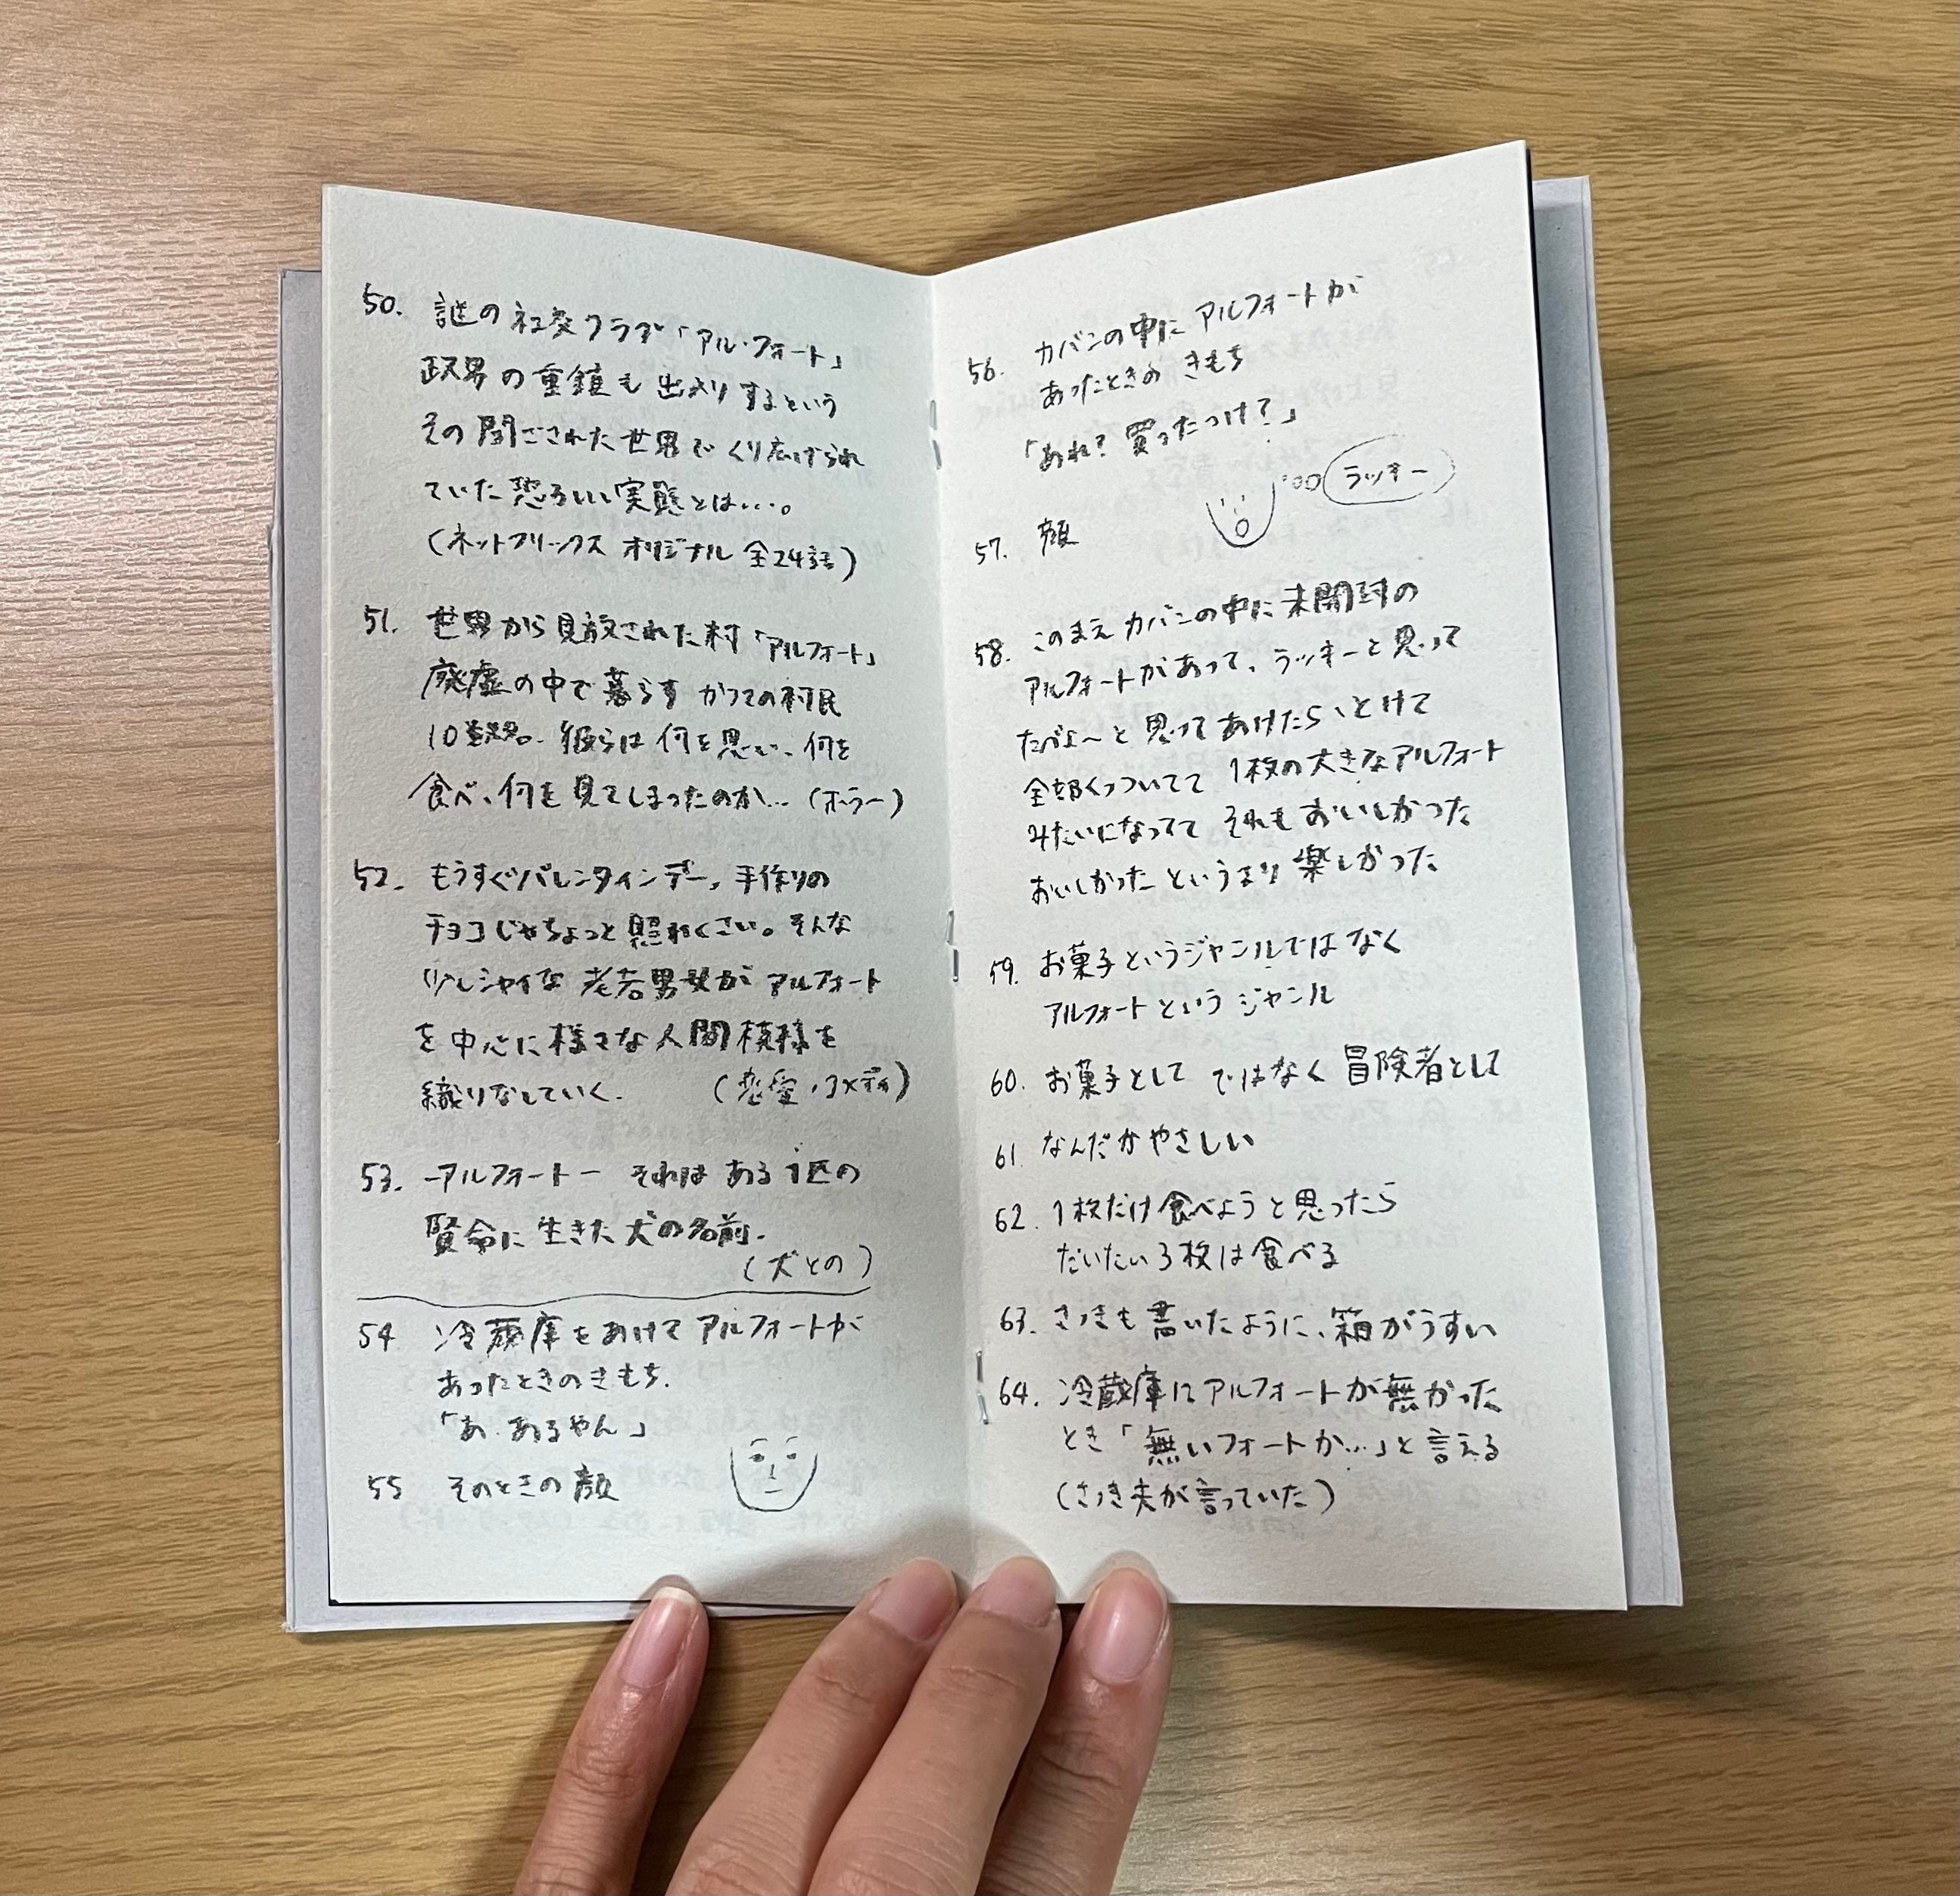 50. 謎の社交クラブ「アル・フォート」
政界の重鎮も出入りするという
その閉ざされた世界でくり広げられ
ていた恐ろしい実態とは…。
(ネットフリックス オリジナル 全24話)
51. 世界から見放された村「アルフォート」
廃虚の中で暮らす かつての村民
10数名。彼らは何を思い、何を
食べ、何を見てしまったのか… (ホラー)
52. もうすぐバレンタインデー。手作りの
チョコじゃちょっと照れくさい。そんな
少しシャイな 老若男女が アルフォート
を中心に様々な人間模様を
織りなしていく. (恋愛・コメディ)
53. ーアルフォートー それは ある1匹の
賢命に生きた犬の名前.
(犬との)
54 冷蔵庫をあけて アルフォートが
あったときのきもち.
「あ. あるやん」
55 そのときの顔
56. カバンの中に アルフォートが
あったときの きもち
「あれ? 買ったっけ?」
ラッキー
57. 顔
58. このまえ カバンの中に 未開封の
アルフォートがあって、ラッキーと思って
たべよ〜と思ってあけたら、とけて
全部くっついてて 1枚の大きなアルフォート
みたいになってて それも おいしかった
おいしかった というより 楽しかった
59. お菓子というジャンルではなく
アルフォートという ジャンル
60. お菓子として ではなく 冒険者として
61. なんだかやさしい
62. 1枚だけ食べようと思ったら
だいたい3枚は食べる
63. さっきも書いたように、箱がうすい
64. 冷蔵庫にアルフォートが無かった
とき「無いフォートか…」と言える
(さっき夫が言っていた)